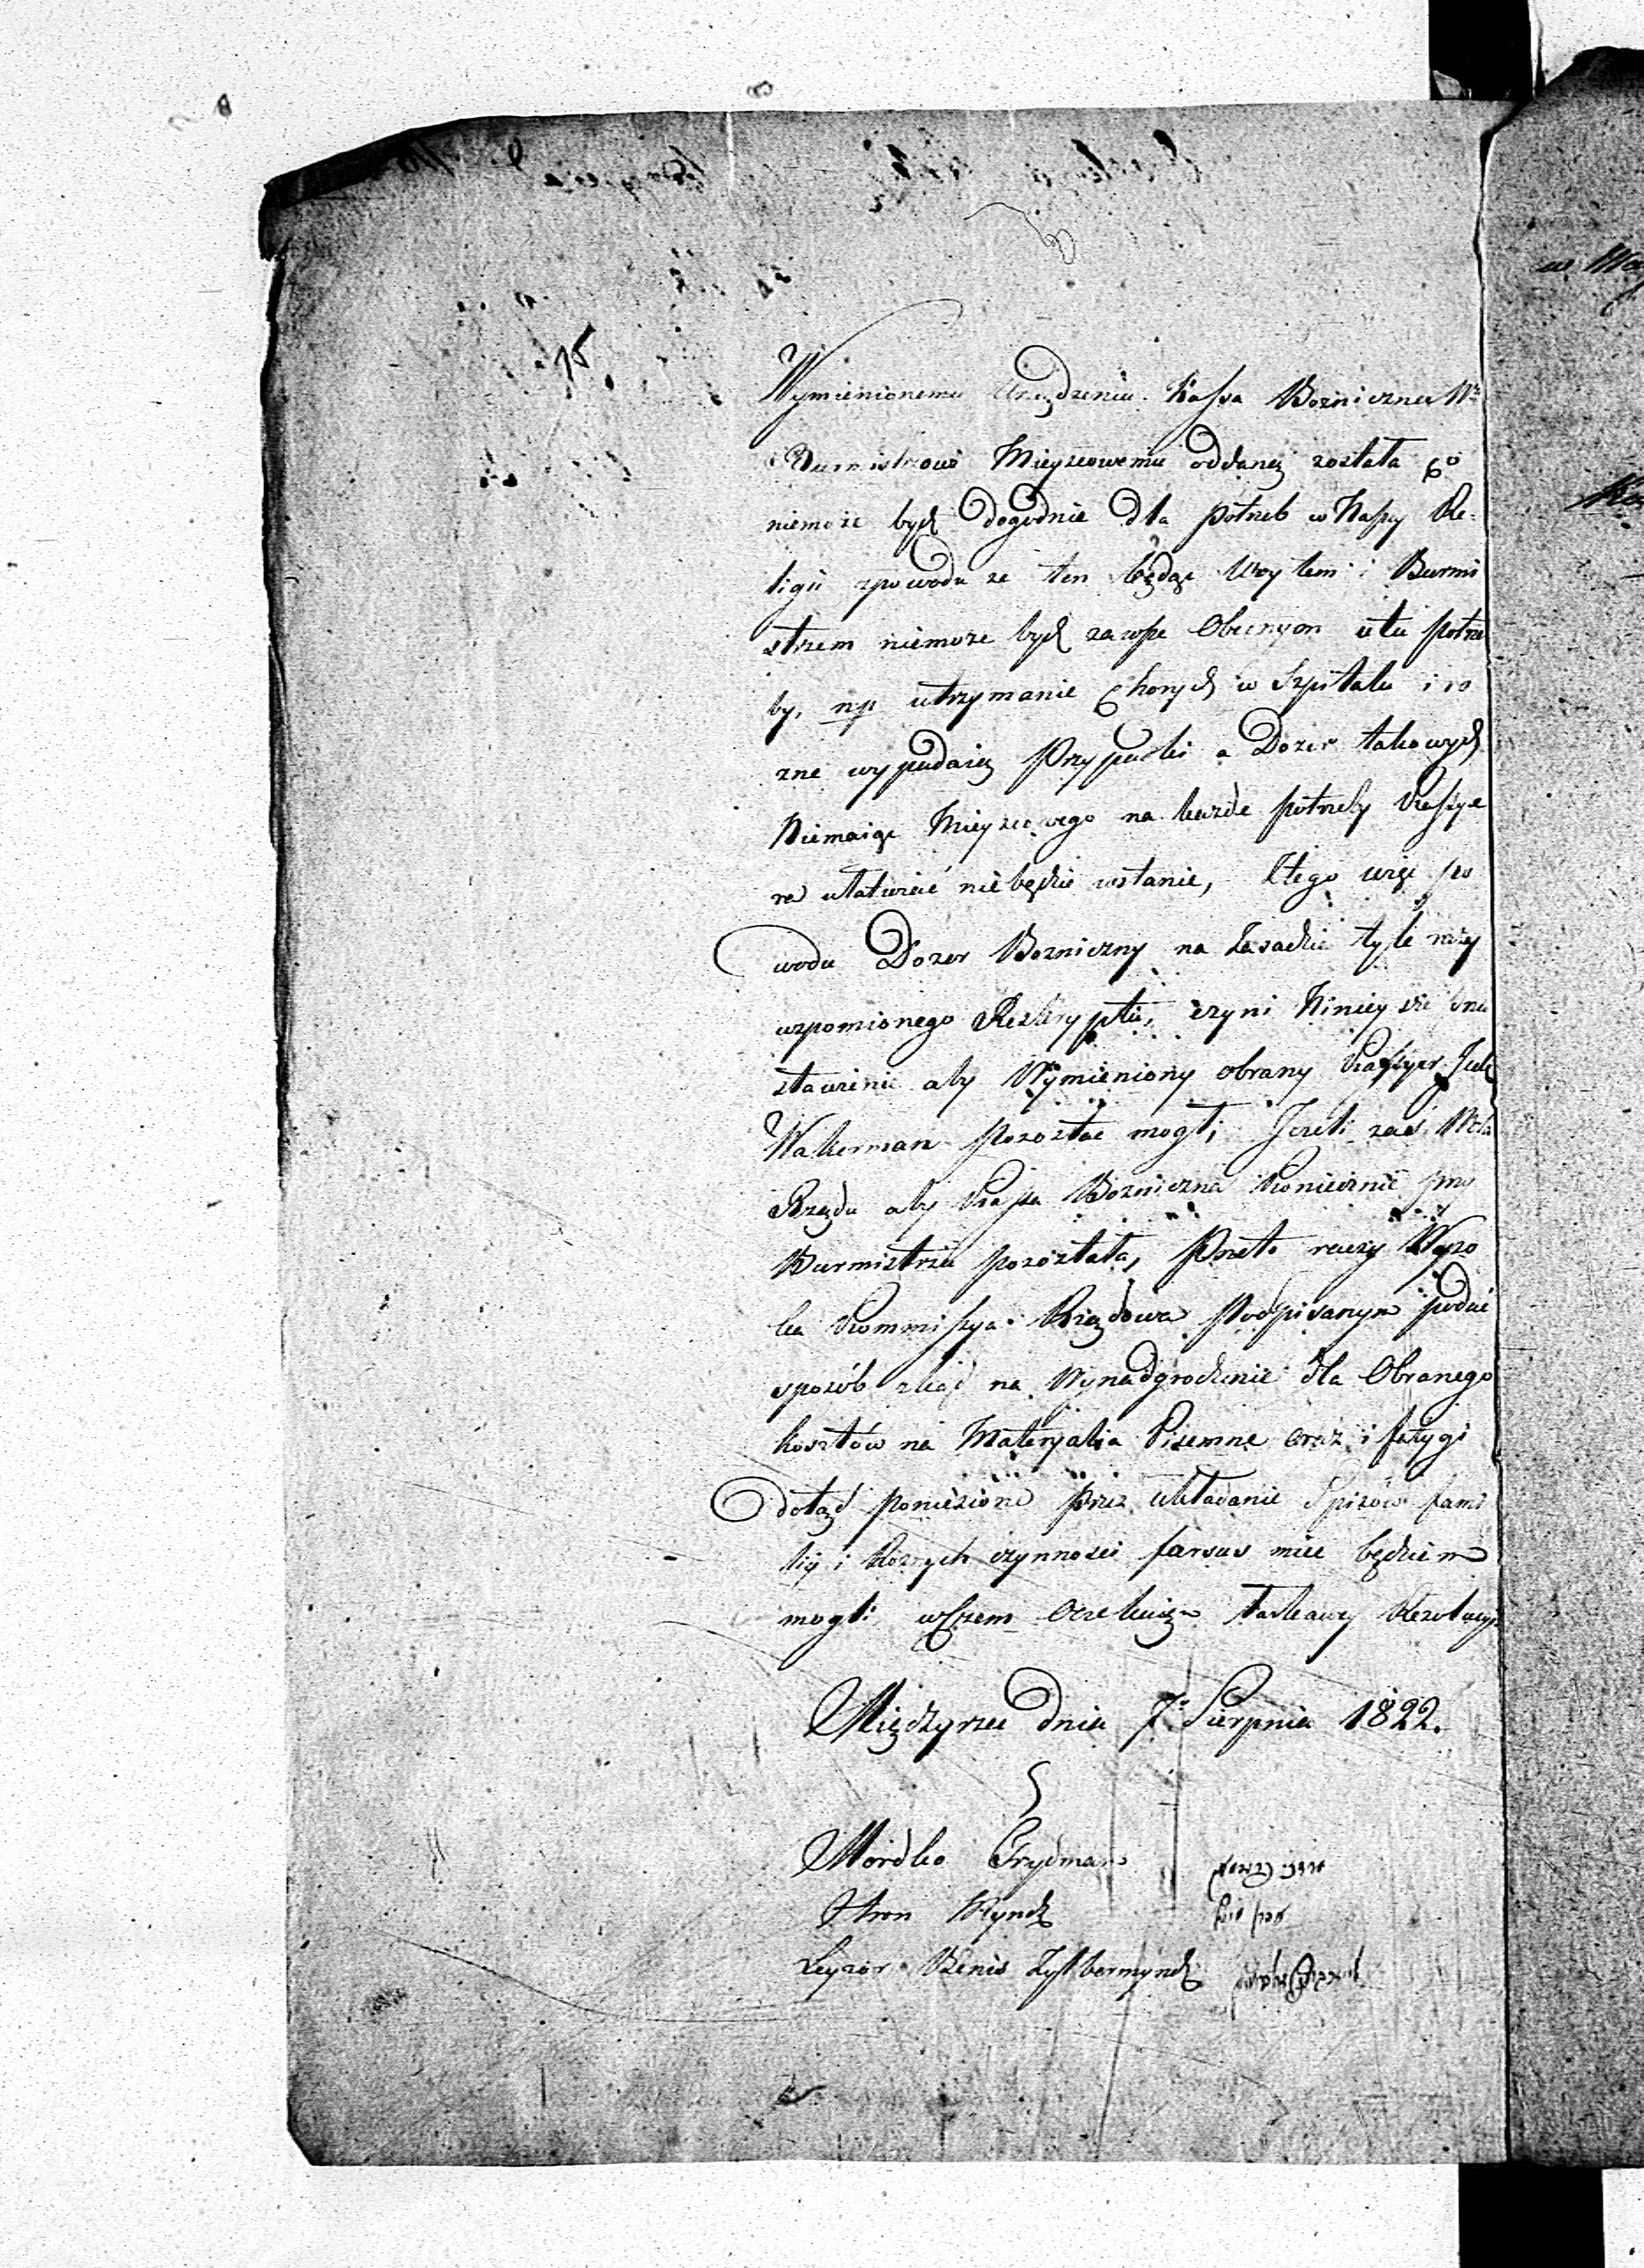 15
Wymienionemu Urządzeniu Kassa Boznicza Wº
Burmistrzowi Mieyscowemu oddaną została co
niemoże bydź dogodnie dla potrzeb w Naszey Re-
ligii zpowodu ze ten będąc Woytem i Burmi
strzem niemoze bydź zawsze Obecnym a tu potrze
by, np utrzymanie Chorych w Szpitalu i ro
zne wypadaią Przypadki a Dozor takowych
Niemaiąc Mieyscowego na kazde potrzeby Kassye
ra ułatwić niebędzie wstanie, Ztego więc po
wodu Dozor Bozniczny na Zasadzie tyle razy
wzpomionego Reskryptu, czyni Ninieysze Prze
stawienie aby Wymieniony obrany Kassyer Icek
Wakerman pozostać mogł; Jezeli zaś Wola
Rządu aby Kassa Boznicza Koniecznie przy
Burmistrzu pozostała, Przeto raczy Wyso
ka Kommissya Rządowa Podpisanym podać
sposób zkąd na Wynadgrodzenie dla Obranego
kosztów na Materyalia Pisemne oraz i fatygi
dotąd poniesione przez układanie Spisów fami
lii i Roznych czynnosci mieć będziem
mogli wczem Oczekuiąm łaskawey Rezolucyi
Międzyrzec dnia 7º Sierpnia 1822.
Mordko Frydman
Aron Rynek
Leyzor Benis Zylbermynck